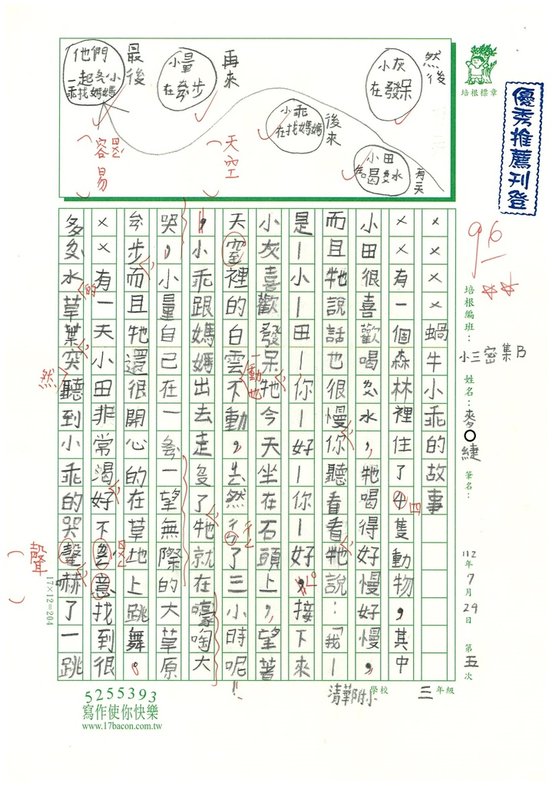 有一天
小田
在喝露水
然後
小灰
在發呆
後來
小乖
在找媽媽
再來
小量
在散步
最後
他們
一起幫小
乖找媽媽
天空
容易
培根標章
優秀推薦刊登
96
培根編班：小三密集B
姓名：麥○緁
筆名：
112年7月29日
第五次
清華附小學校 三年級
××××蝸牛小乖的故事
××有一個森林裡住了4隻動物，其中
四
小田很喜歡喝露水，牠喝得好慢好慢，
而且牠說話也很慢你聽看看牠說：「我｜
是｜小｜田｜你｜好｜你｜好，接下來
小灰喜歡發呆牠今天坐在石頭上，望著
天空裡的白雲不動，
一動也
了三小時呢！
，小乖跟媽媽出去走散了牠就在嚎啕大
哭，小量自己在一望無際的大草原
散步而且牠還很開心的在草地上跳舞。
××有一天小田非常渴好不容易找到很
多露水草葉突聽到小乖的哭聲嚇了一跳
的
然
聲
17×12=204
5255393
寫作使你快樂
www.17bacon.com.tw